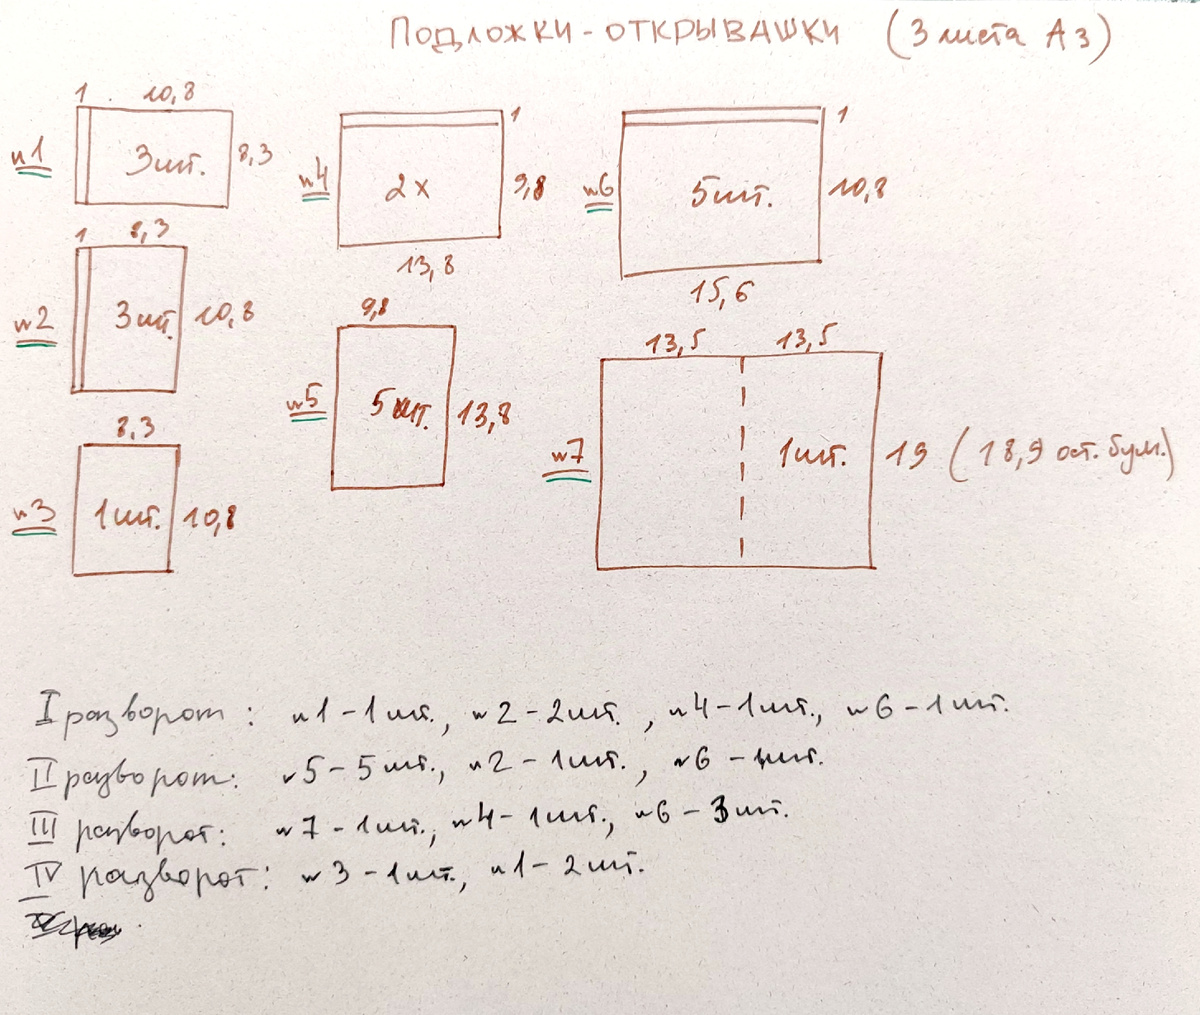 Подложки-открывашки (3 листа А3)
1 10,8
n1 3шт. 8,3
1 8,3
n2 3шт. 10,8
8,3
n3 1шт. 10,8
1
n4 2x 9,8
13,8
9,8
n5 5шт. 13,8
1
n6 5шт. 10,8
15,6
13,5 13,5
n7 1шт. 19 (18,9 ост. бум.)
I разворот: n1-1шт., n2-2шт., n4-1шт., n6-1шт.
II разворот: n5-5шт., n2-1шт., n6-1шт.
III разворот: n7-1шт., n4-1шт., n6-3шт.
IV разворот: n3-1шт., n1-2шт.